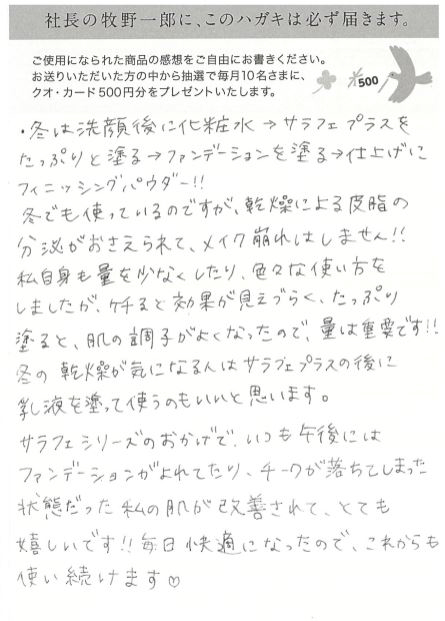 社長の牧野一郎に、このハガキは必ず届きます。
ご使用になられた商品の感想をご自由にお書きください。
お送りいただいた方の中から抽選で毎月10名さまに、
クオ・カード500円分をプレゼントいたします。
¥500
・冬は洗顔後に化粧水→サラフェプラスを
たっぷりと塗る→ファンデーションを塗る→仕上げに
フィニッシングパウダー!!
冬でも使っているのですが、乾燥による皮脂の
分泌がおさえられて、メイク崩れはしません!!
私自身も量を少なくしたり、色々な使い方を
しましたが、ケチると効果が見えづらく、たっぷり
塗ると、肌の調子がよくなったので、量は重要です!!
冬の乾燥が気になる人はサラフェプラスの後に
乳液を塗って使うのもいいと思います。
サラフェシリーズのおかげで、いつも午後には
ファンデーションがよれてたり、チークが落ちてしまった
状態だった私の肌が改善されて、とても
嬉しいです!!毎日快適になったので、これからも
使い続けます♡